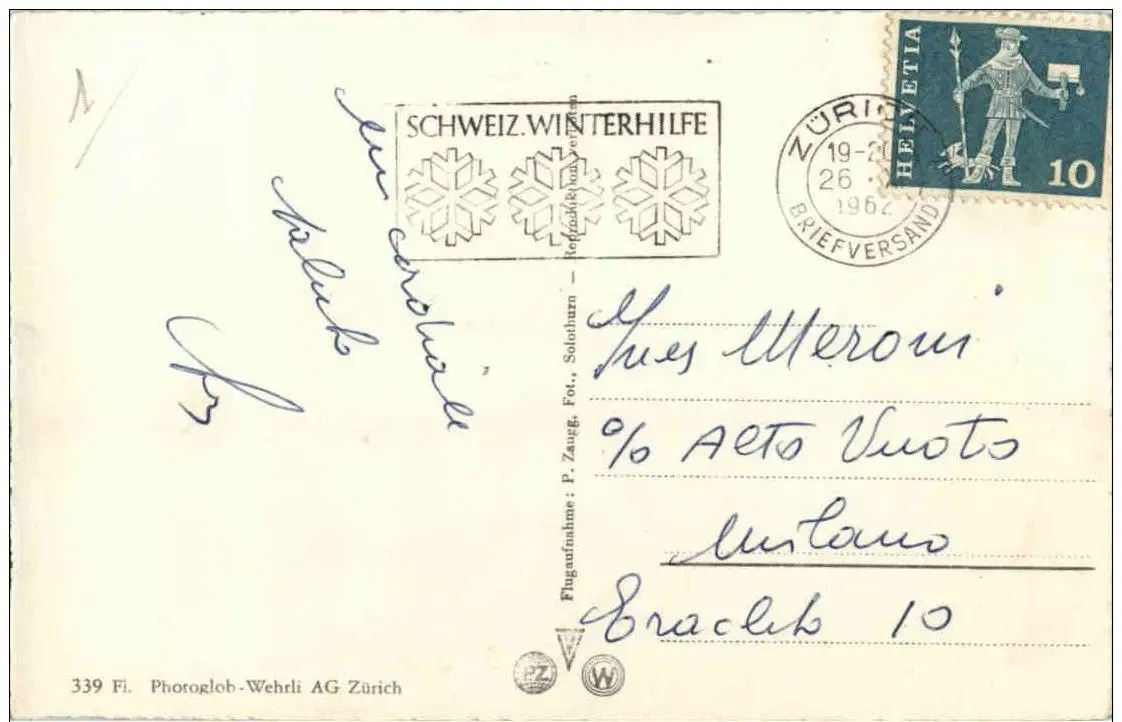 1
un cordiale
saluto
SCHWEIZ. WINTERHILFE
ZÜRICH
19-20
26
1962
BRIEFVERSAND
HELVETIA
10
Ynes Meroni
c/o Alto Vuoto
Milano
Eracleto 10
Flugaufnahme: P. Zaugg, Fot., Solothurn — Reproduktion verboten
PZ
W
339 Fl. Photoglob-Wehrli AG Zürich